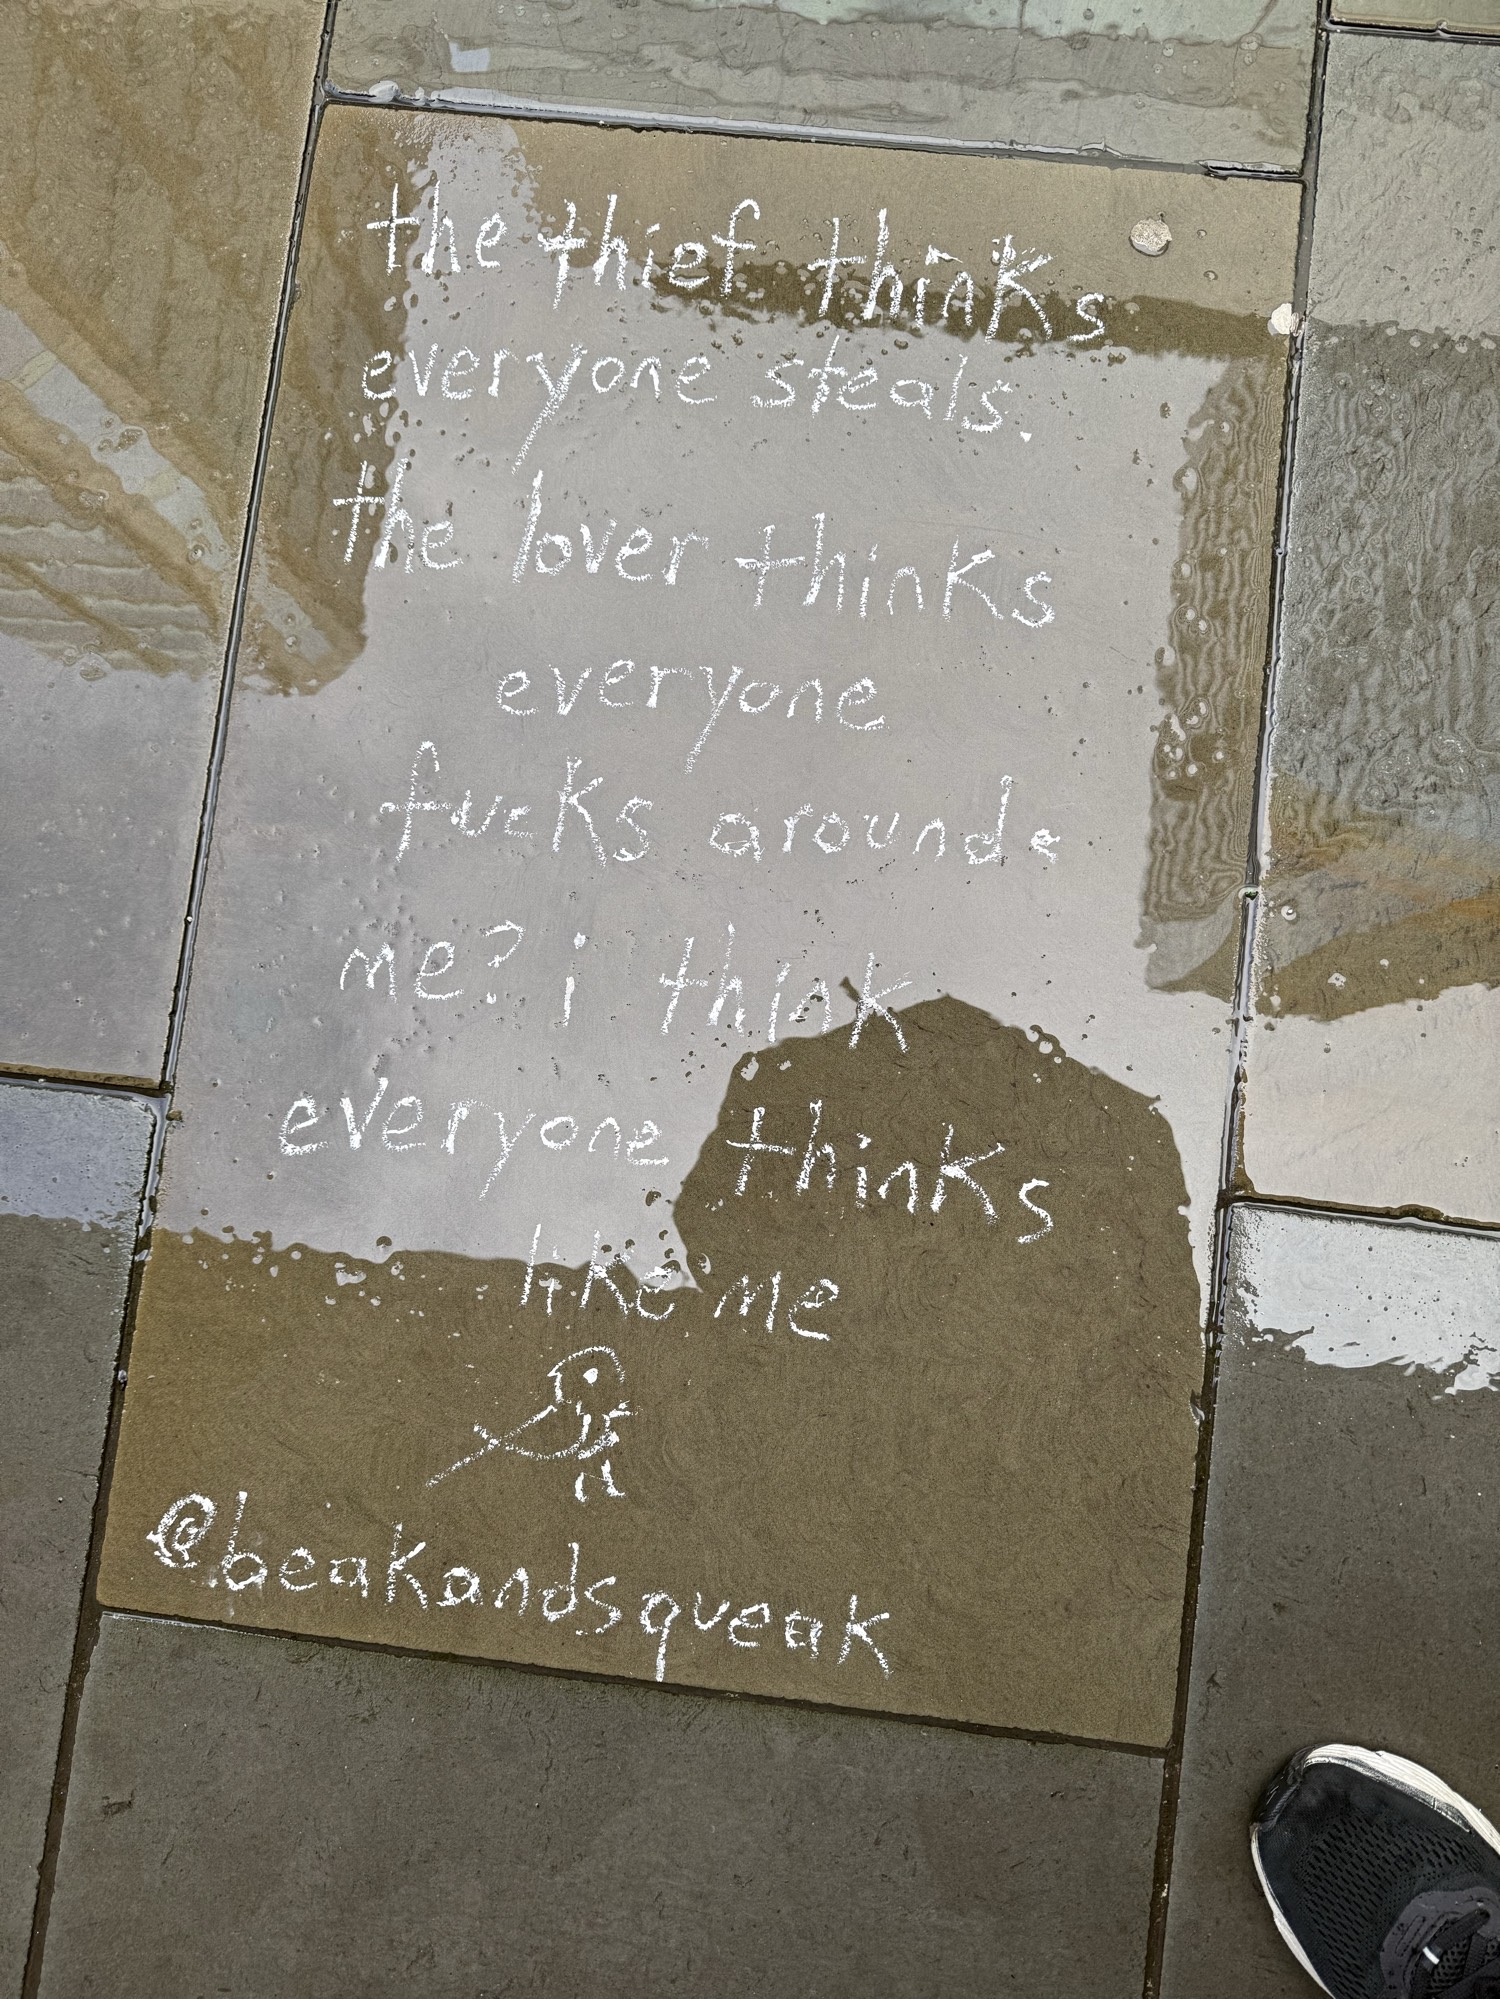 the thief thinks
everyone steals.
the lover thinks
everyone
fucks around.
me? i think
everyone thinks
like me
@beakandsqueak